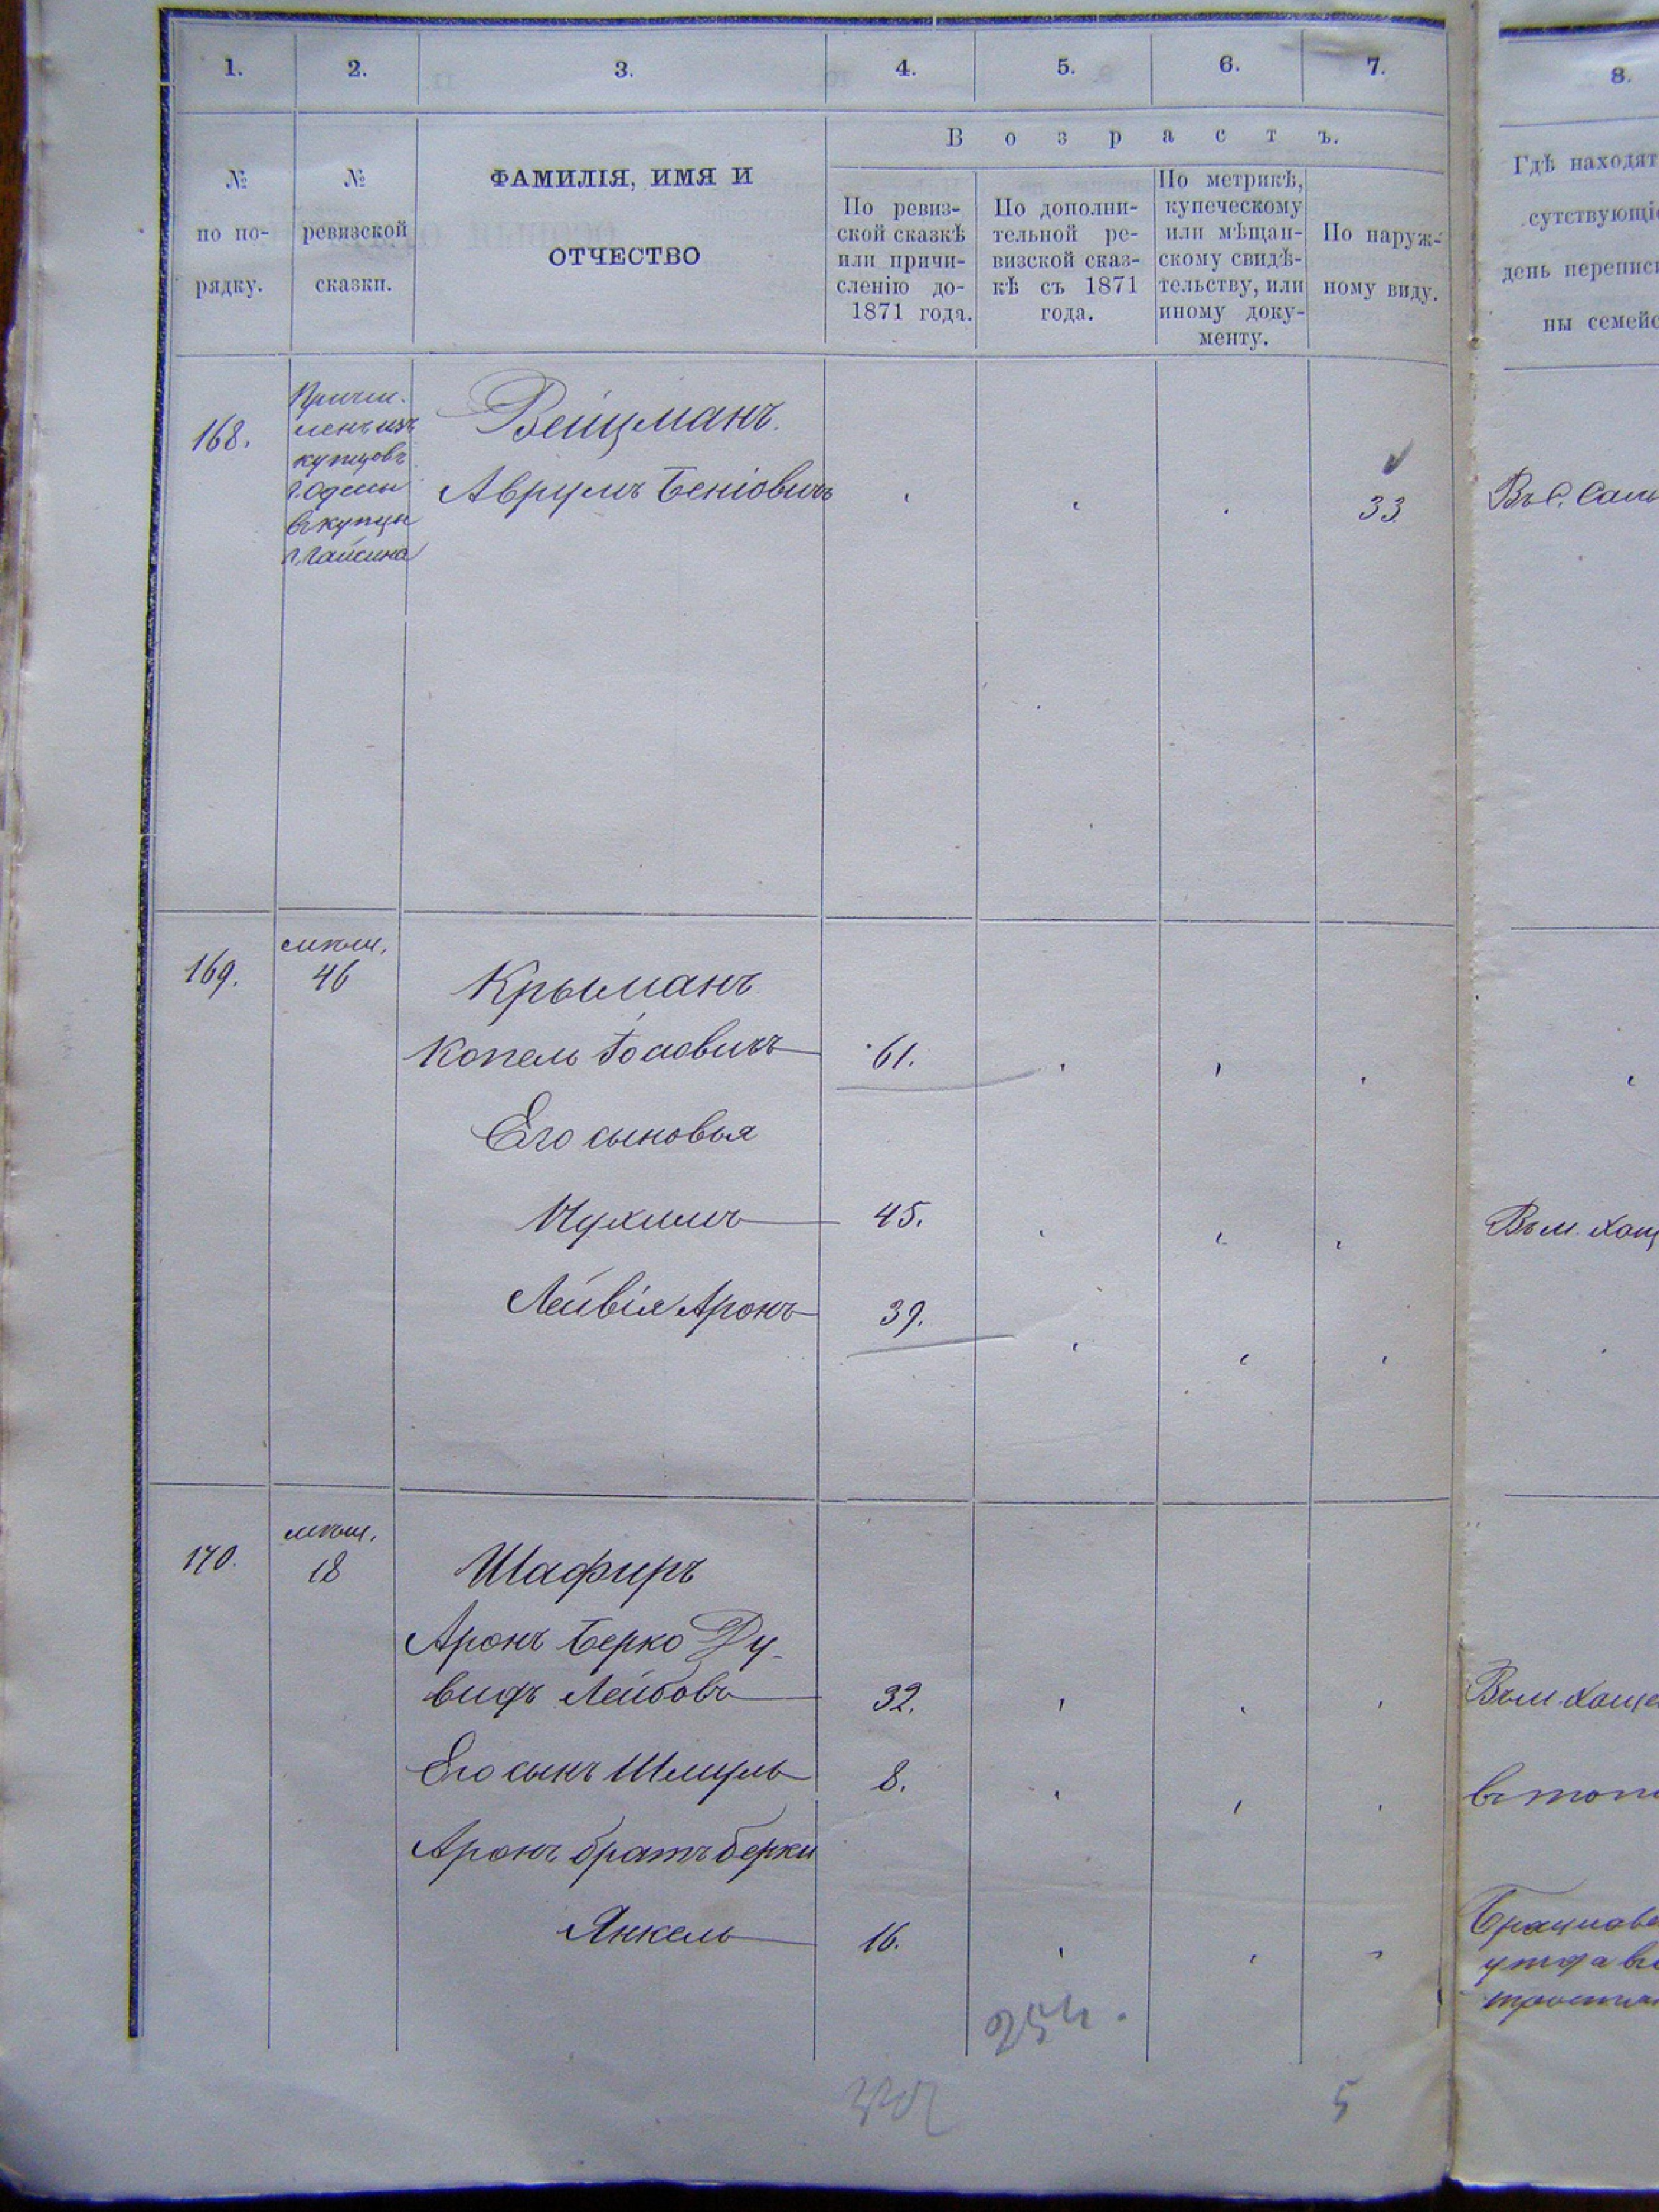 1. 2. 3. 4. 5. 6. 7. 8.
В о з р а с т ъ.
№
по по-
рядку.
№
ревизской
сказки.
ФАМИЛІЯ, ИМЯ И
ОТЧЕСТВО
По ревиз-
ской сказкѣ
или причи-
сленію до
1871 года.
По дополни-
тельной ре-
визской сказ-
кѣ съ 1871
года.
По метрикѣ,
купеческому
или мѣщан-
скому свидѣ-
тельству, или
иному доку-
менту.
По наруж-
ному виду.
Гдѣ находят
сутствующі
день перепис
ны семейс
168.
Причи-
сленъ изъ
купцовъ
г. Одессы
въ купцы
г. Гайсина
Вейцманъ.
Аврумъ Беніовичъ
33.
Въ с. Саль
169.
мѣщ.
46
Крыманъ
Копель Іосіовичъ
61.
Его сыновья
Нухимъ
45.
Въ м. Хащ
Лейвія Аронъ
39.
170.
мѣщ.
18
Шафиръ
Аронъ Берко Ду-
видъ Лейбовъ
32.
Въ м. Хаще
Его сынъ Шмуль
8.
Аронъ братъ Берки
Янкель
16.
Брацлавс
уѣзда въ
254.
5